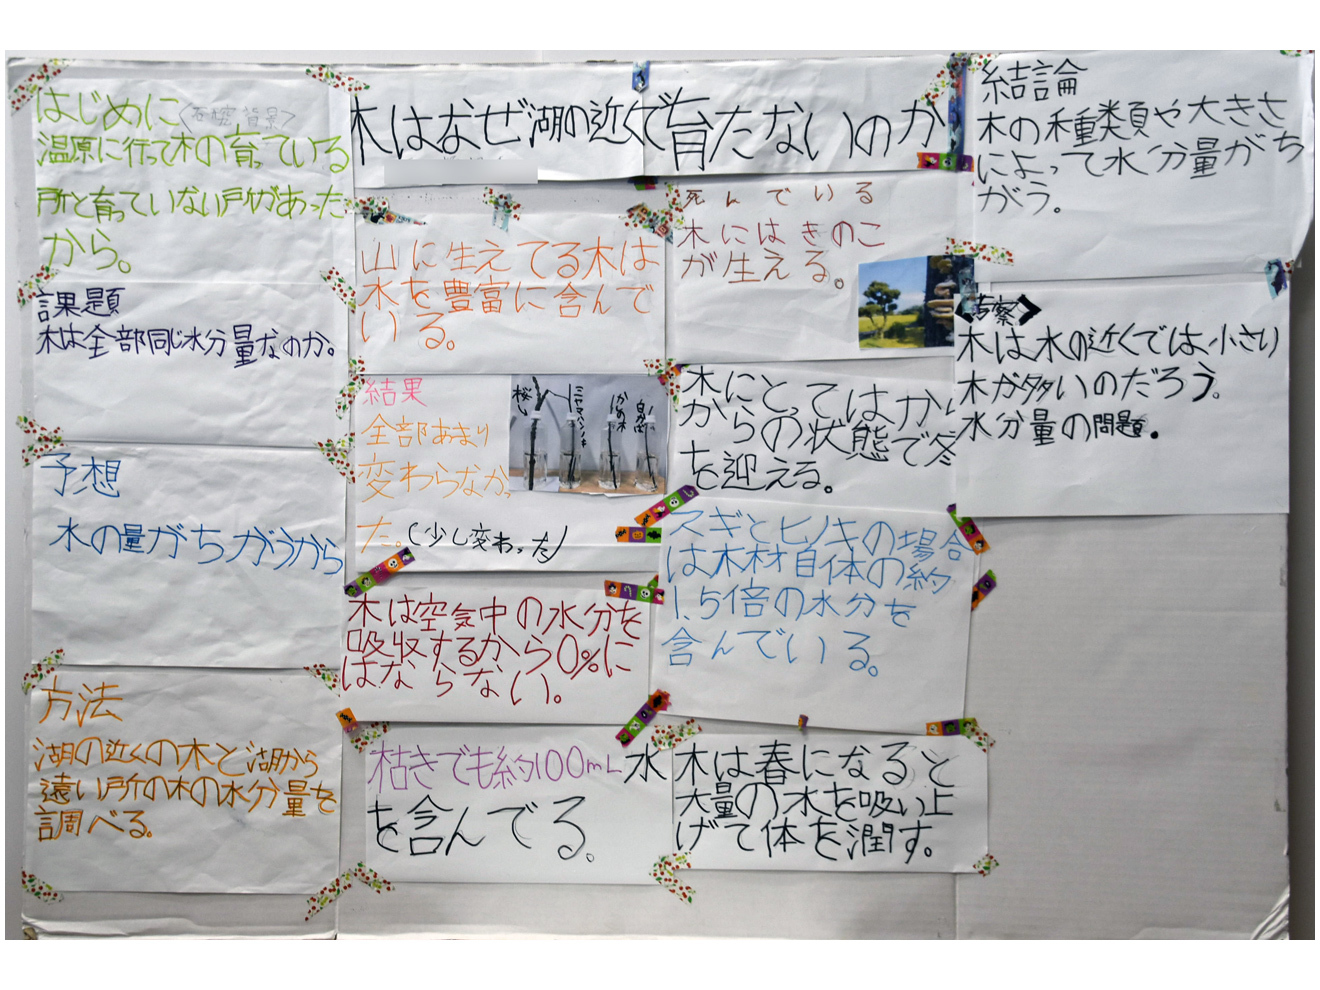 木はなぜ湖の近くで育たないのか
はじめに
温原に行って木の育っている
所と育っていない所があった
から。
課題
木は全部同じ水分量なのか。
予想
水の量がちがうから
方法
湖の近くの木と湖から
遠い所の木の水分量を
調べる。
山に生えてる木は
水を豊富に含んで
いる。
結果
全部あまり
変わらなかっ
た。(少し変わった)
桜
ミヤマハンノキ
かめ木
白かば
木は空気中の水分を
吸収するから0%に
はならない。
枯きでも約100mL水
を含んでる。
死んでいる
木にはきのこ
が生える。
木にとってはかい
からの状態で冬
を迎える。
スギとヒノキの場合
は木材自体の約
1.5倍の水分を
含んでいる。
木は春になると
大量の水を吸い上
げて体を潤す。
結論
木の種類や大きさ
によって水分量がち
がう。
<考察>
木は水の近くでは小さい
木が多いのだろう。
水分量の問題。